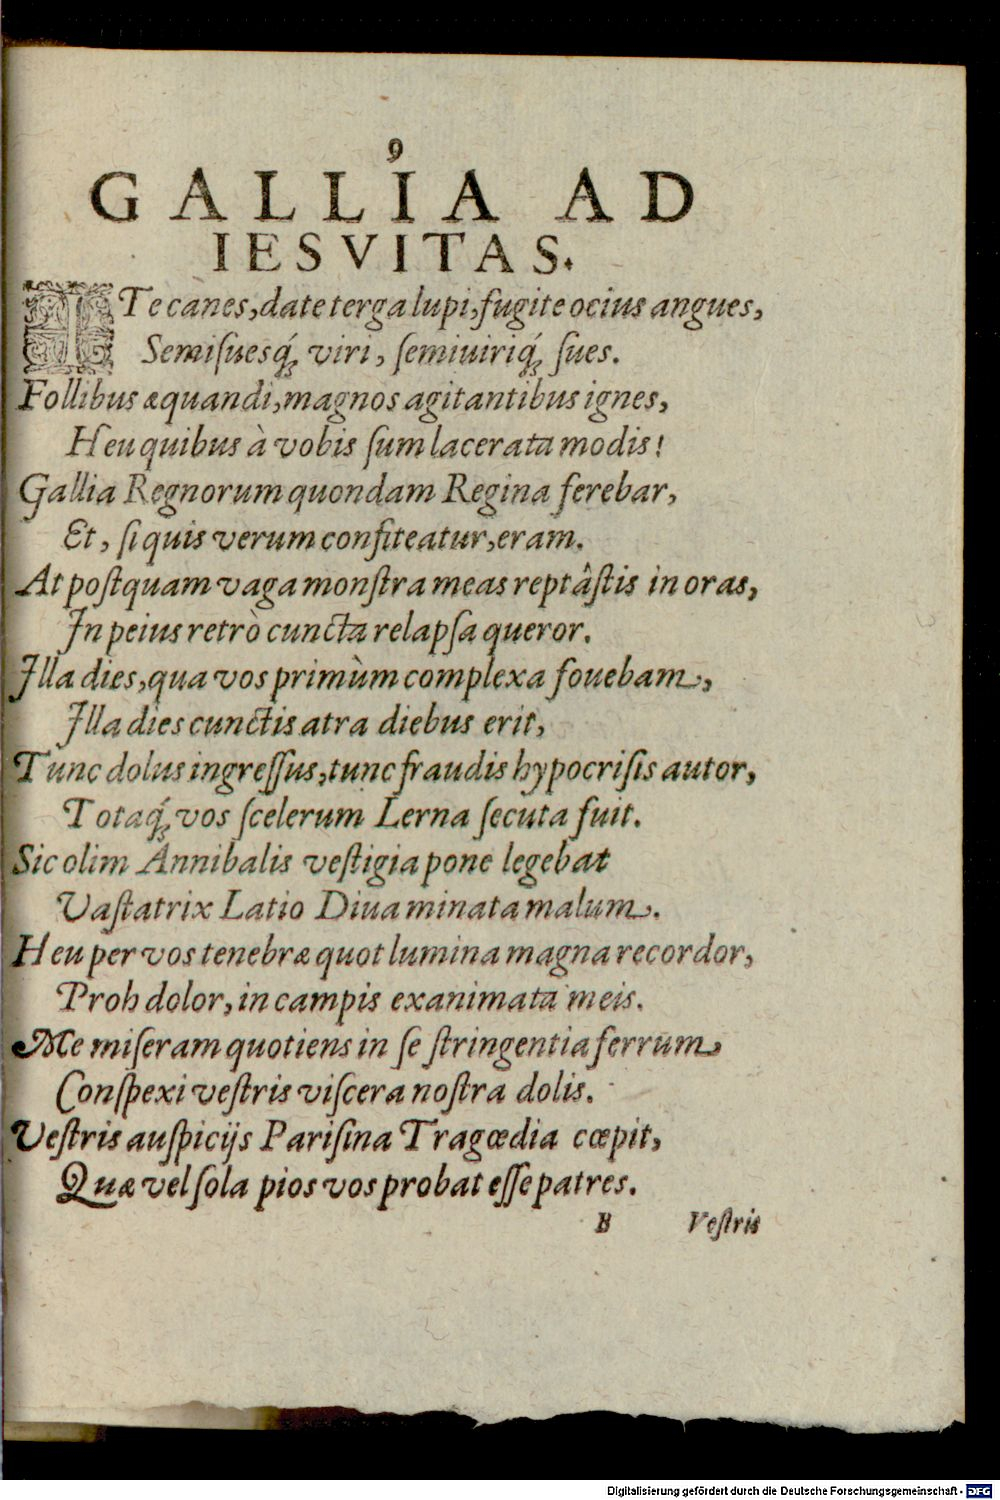 9
GALLIA AD
IESVITAS.
ITe canes, date terga lupi, fugite ocius angues,
Semiſuesq́; viri, ſemiuiriq́; ſues.
Follibus æquandi, magnos agitantibus ignes,
Heu quibus à vobis ſum lacerata modis!
Gallia Regnorum quondam Regina ferebar,
Et, ſi quis verum confiteatur, eram.
At poſtquam vaga monſtra meas reptâſtis in oras,
In peius retrò cuncta relapſa queror.
Illa dies, qua vos primùm complexa fouebam,
Illa dies cunctis atra diebus erit,
Tunc dolus ingreſſus, tunc fraudis hypocriſis autor,
Totaq́; vos ſcelerum Lerna ſecuta fuit.
Sic olim Annibalis veſtigia pone legebat
Vaſtatrix Latio Diua minata malum.
Heu per vos tenebræ quot lumina magna recordor,
Proh dolor, in campis exanimata meis.
Me miſeram quotiens in ſe ſtringentia ferrum
Conſpexi veſtris viſcera noſtra dolis.
Veſtris auſpicijs Pariſina Tragœdia cœpit,
Quæ vel ſola pios vos probat eſſe patres.
B Veſtris
Digitalisierung gefördert durch die Deutsche Forschungsgemeinschaft - DFG